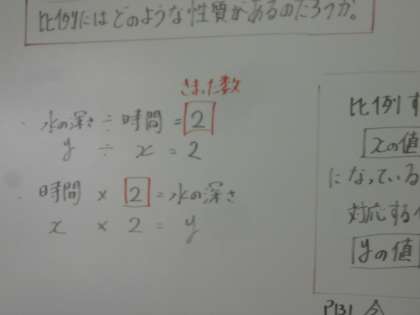 比例にはどのような性質があるのだろうか。
きまった数
・水の深さ÷時間=2
y ÷ x = 2
・時間×2=水の深さ
x × 2 = y
比例す
xの値
になっている
対応する
yの値
P131 △